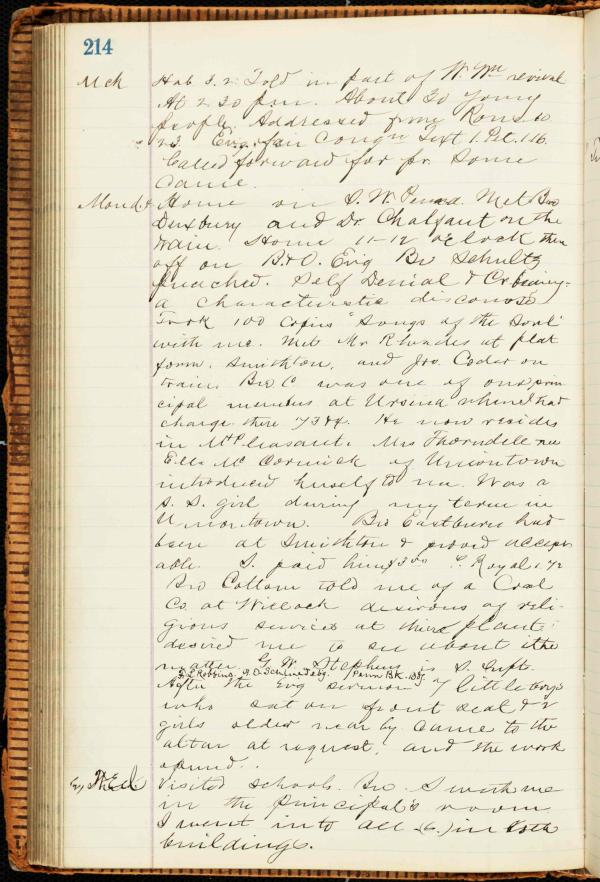 214
Mch Hab 3.2. Told in part of W. Wm revival
At 2 30 p.m. About 30 young
people. Addressed from Rom 10
Evg. fair Congn Text 1. Pet. 1.16.
Called forward for pr. Some
Came.
Mond. Home on S. W. Penna. Met Bro
Duxbury and Dr. Chalfant on the
train. Home 11-12 o'clock then
off on B&O. Evg Bro Schultz
preached. Self Denial &
a characteristic discourse
Took 100 Copies "Songs of the Soul"
with me. Met Mr Rhoades at plat
form, Smithton, and Jno. Cedar on
train. Bro C was one of our prin
cipal members at Ursina when I had
charge there 73&4. He now resides
in Mt Pleasant. Mrs Thorndell nee
Ella Mc Cormick of Uniontown
introduced herself to me. Was a
S. S. girl during my term in
Uniontown. Bro Eastburn had
been at Smithton & proved accept
able. I paid him $3.00 Royal 1 42
Bro Cottom told me of a Coal
Co. at Willock desirous of reli-
gious services at their plant:
desired me to see about the
matter G. W. Stephens is S. Supt.
Robbins. Penn Bk. Bldg.
After the Evg sermon 7 little boys
who sat on front seat & 2
girls older near by came to the
altar at request, and the work
opened.
Wed. Visited schools. Bro. S with me
in the principal's room
I went into all (6.) in both
buildings.